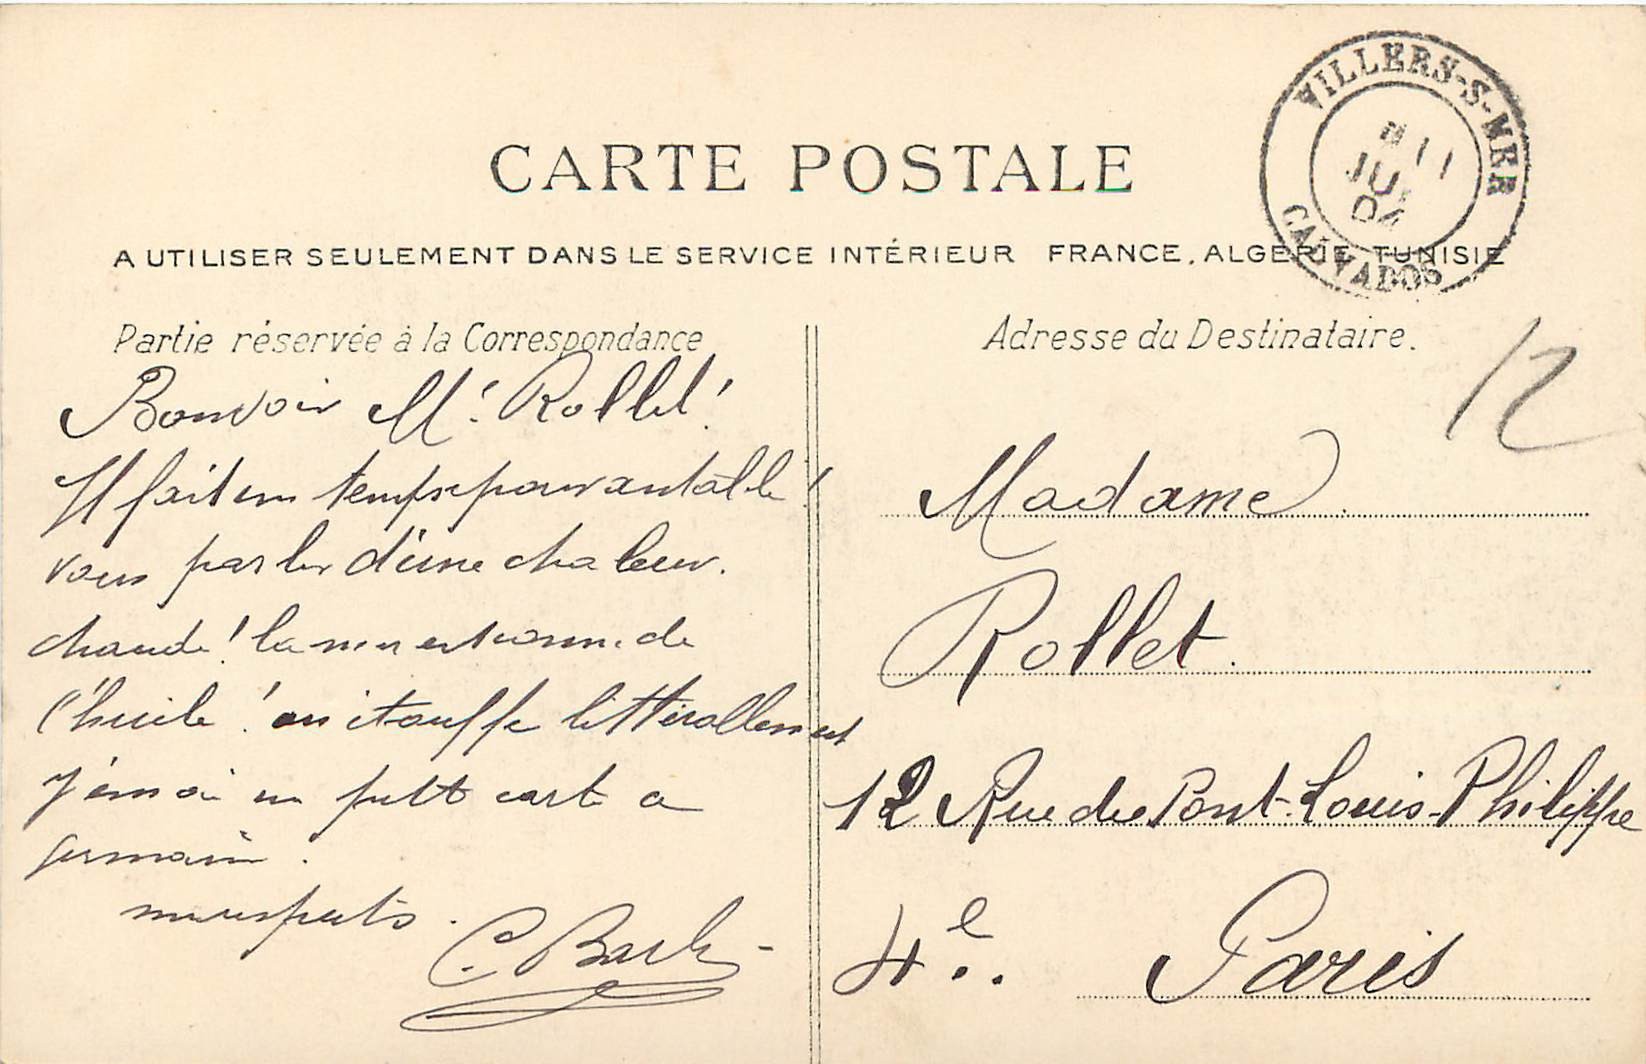 CARTE POSTALE
A UTILISER SEULEMENT DANS LE SERVICE INTÉRIEUR FRANCE, ALGERIE, TUNISIE
VILLERS-S-MER
11
JUI
04
CALVADOS
Partie réservée à la Correspondance
Bonsoir Mr Rollet!
Il fait un temps epouvantable!
vous parler d'une chaleur.
chaude! la mer est comme de
l'huile! on étouffe littérallement
un petit carte a
germain.
C. Bach
Adresse du Destinataire.
12
Madame
Rollet.
12 Rue du Pont-Louis-Philippe
4e..
Paris